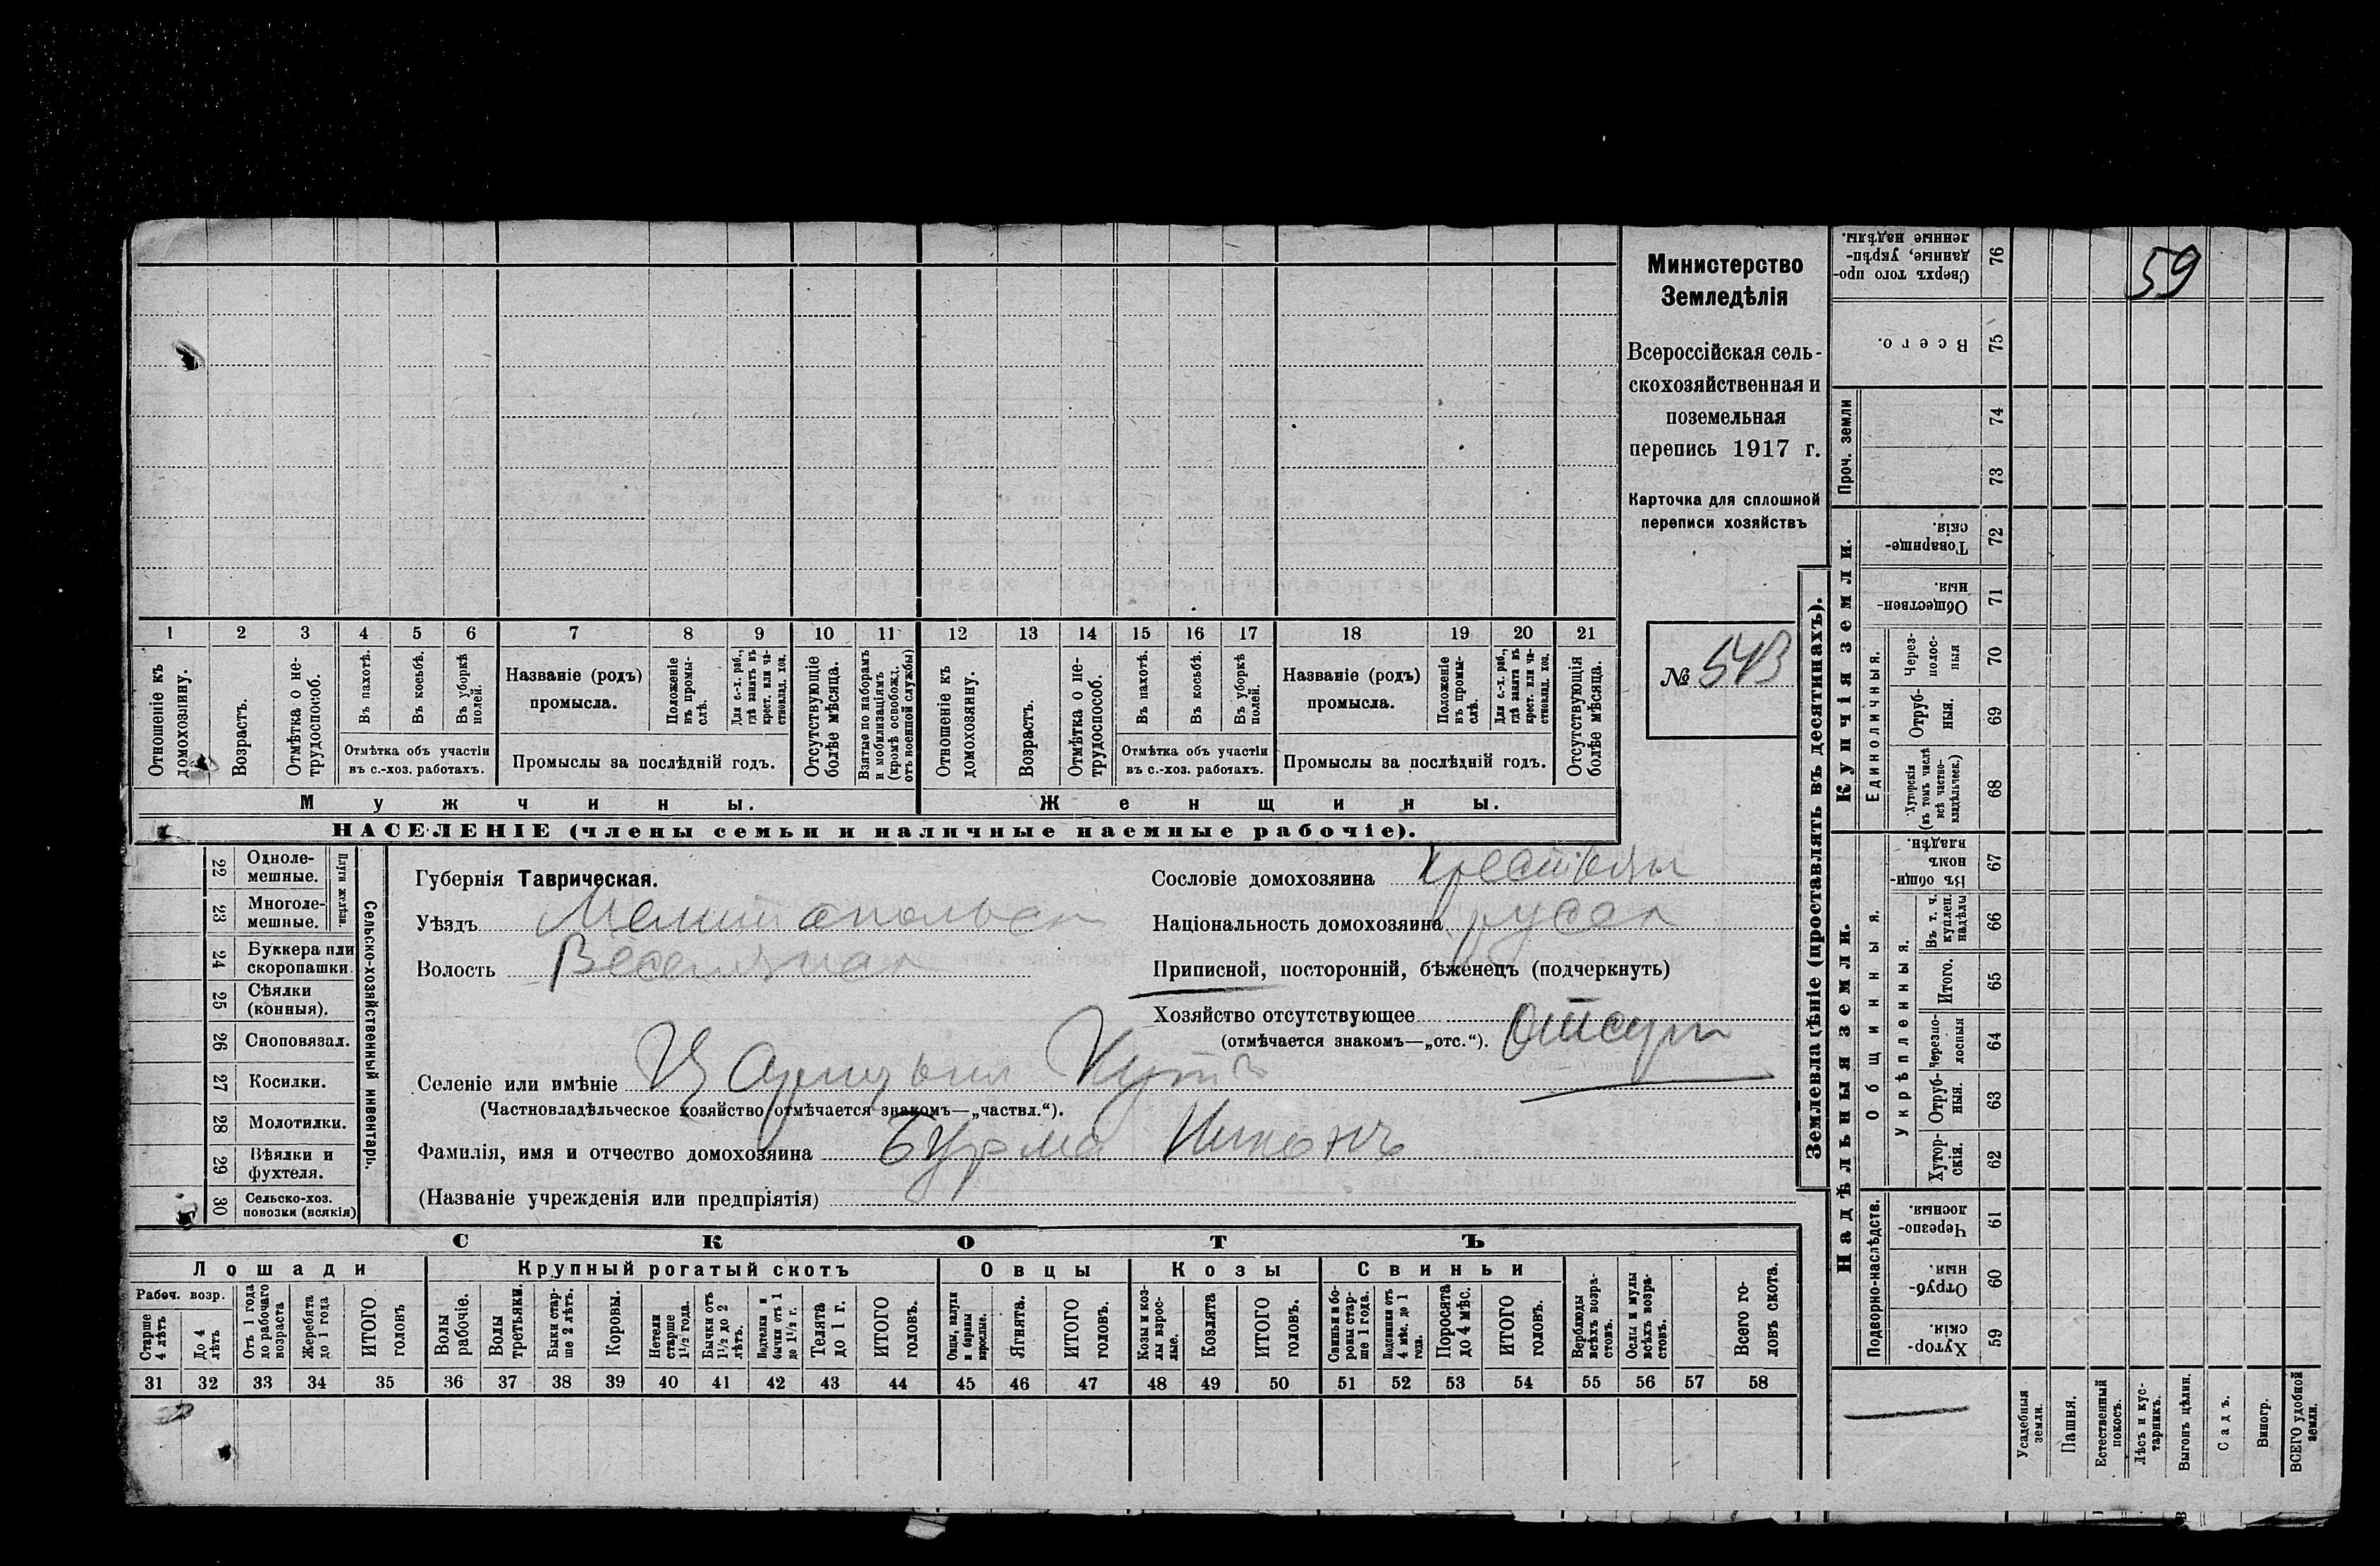 59
Министерство
Земледѣлія
Всероссійская сель-
скохозяйственная и
поземельная
перепись 1917 г.
Карточка для сплошной
переписи хозяйствъ
№ 543
1 2 3 4 5 6 7 8 9 10 11 12 13 14 15 16 17 18 19 20 21
Отношеніе къ домохозяину.
Возрастъ.
Отмѣтка о не-трудоспособ.
Въ пахотѣ.
Въ косьбѣ.
Въ уборкѣ полей.
Отмѣтка объ участіи
въ с.-хоз. работахъ.
Названіе (родъ)
промысла.
Положеніе въ промы-слѣ.
Для с.-х. раб., гдѣ занятъ въ крест. или ча-стновлад. хоз.
Промыслы за послѣдній годъ.
Отсутствующіе болѣе мѣсяца.
Взятые по наборамъ и мобилизаціямъ (кромѣ освобожд. отъ военной службы)
Отношеніе къ домохозяину.
Возрастъ.
Отмѣтка о не-трудоспособ.
Въ пахотѣ.
Въ косьбѣ.
Въ уборкѣ полей.
Отмѣтка объ участіи
въ с.-хоз. работахъ.
Названіе (родъ)
промысла.
Положеніе въ промы-слѣ.
Для с.-х. раб., гдѣ занята въ крест. или ча-стновлад. хоз.
Промыслы за послѣдній годъ.
Отсутствующія болѣе мѣсяца.
Мужчины.
Женщины.
НАСЕЛЕНІЕ (члены семьи и наличные наемные рабочіе).
Сельско-хозяйственный инвентарь.
Плуги желѣзн.
22 Одноле-мешные.
23 Многоле-мешные.
24 Буккера или скоропашки.
25 Сѣялки (конныя).
26 Сноповязал.
27 Косилки.
28 Молотилки.
29 Вѣялки и фухтеля.
30 Сельско-хоз. повозки (всякія)
Губернія Таврическая.
Уѣздъ Мелитопольск
Волость Веселянская
Сословіе домохозяина
Національность домохозяина русск
Приписной, посторонній, бѣженецъ (подчеркнуть)
Хозяйство отсутствующее Отсут
(отмѣчается знакомъ—„отс.“).
Селеніе или имѣніе Царицынъ Кутъ
(Частновладѣльческое хозяйство отмѣчается знакомъ—„частвл.“).
Фамилія, имя и отчество домохозяина Бурма Никонъ
(Названіе учрежденія или предпріятія)
СКОТЪ
Лошади
Крупный рогатый скотъ
Овцы
Козы
Свиньи
Рабоч. возр.
Старше 4 лѣтъ
До 4 лѣтъ
Отъ 1 года до рабочаго возраста
Жеребята до 1 года
ИТОГО головъ
Волы рабочіе.
Волы третьяки.
Быки стар-ше 2 лѣтъ.
Коровы.
Нетели старше 1½ года.
Бычки отъ 1½ до 2 лѣтъ.
Подтелки и бычки отъ 1 до 1½ г.
Телята до 1 г.
ИТОГО головъ.
Овцы, валухи и бараны взрослые.
Ягнята.
ИТОГО головъ.
Козы и коз-лы взрос-лые.
Козлята
ИТОГО головъ.
Свиньи и бо-ровы стар-ше 1 года.
Подсвинки отъ 4 мѣс. до 1 года.
Поросята до 4 мѣс.
ИТОГО головъ.
Верблюды всѣхъ возра-стовъ.
Ослы и мулы всѣхъ возра-стовъ.
Всего го-ловъ скота.
31 32 33 34 35 36 37 38 39 40 41 42 43 44 45 46 47 48 49 50 51 52 53 54 55 56 57 58
Землевладѣніе (проставлять въ десятинахъ).
Надѣльныя земли.
Купчія земли.
Подворно-наслѣдств.
Общинныя.
Укрѣпленныя.
Единоличныя.
Проч. земли
Сверхъ того про-данные, укрѣп-ленные надѣлы. 76
Всего. 75
74
73
Товарище-скія. 72
Обществен-ныя. 71
Через-полос-ныя 70
Отруб-ныя. 69
Хуторскія (въ томъ числѣ всѣ частно-владѣльчес.) 68
Въ общи-номъ владѣн. 67
Въ т. ч. куплен. надѣлы 66
Итого. 65
Черезпо-лосныя 64
Отруб-ныя. 63
Хутор-скія. 62
Черезпо-лосныя. 61
Отруб-ныя. 60
Хутор-скія. 59
Усадебныя земли.
Пашня.
Естественный покосъ.
Лѣсъ и кус-тарникъ.
Выгонъ цѣлин.
Садъ.
Виногр.
ВСЕГО удобной земли.